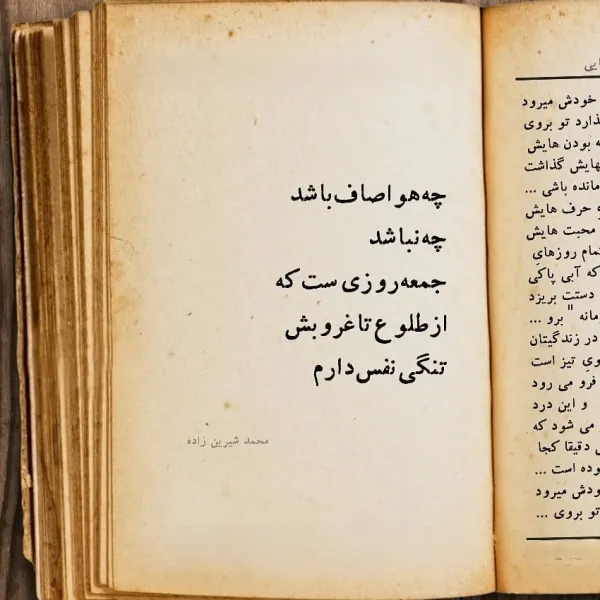 چه هوا صاف باشد
چه نباشد
جمعه روزی ست که
از طلوع تا غروبش
تنگی نفس دارم
محمد شیرین زاده
خودش میرود
تو بروی
بودن هایش
هایش گذاشت
مانده باشی ...
حرف هایش
محبت هایش
تمام روزهای
که آبی پاکی
دستت بریزد
"برو ...
در زندگیتان
تیز است
فرو می رود
و این درد
می شود که
دقیقا کجا
وده است ...
ودش میرود
تو بروی ...